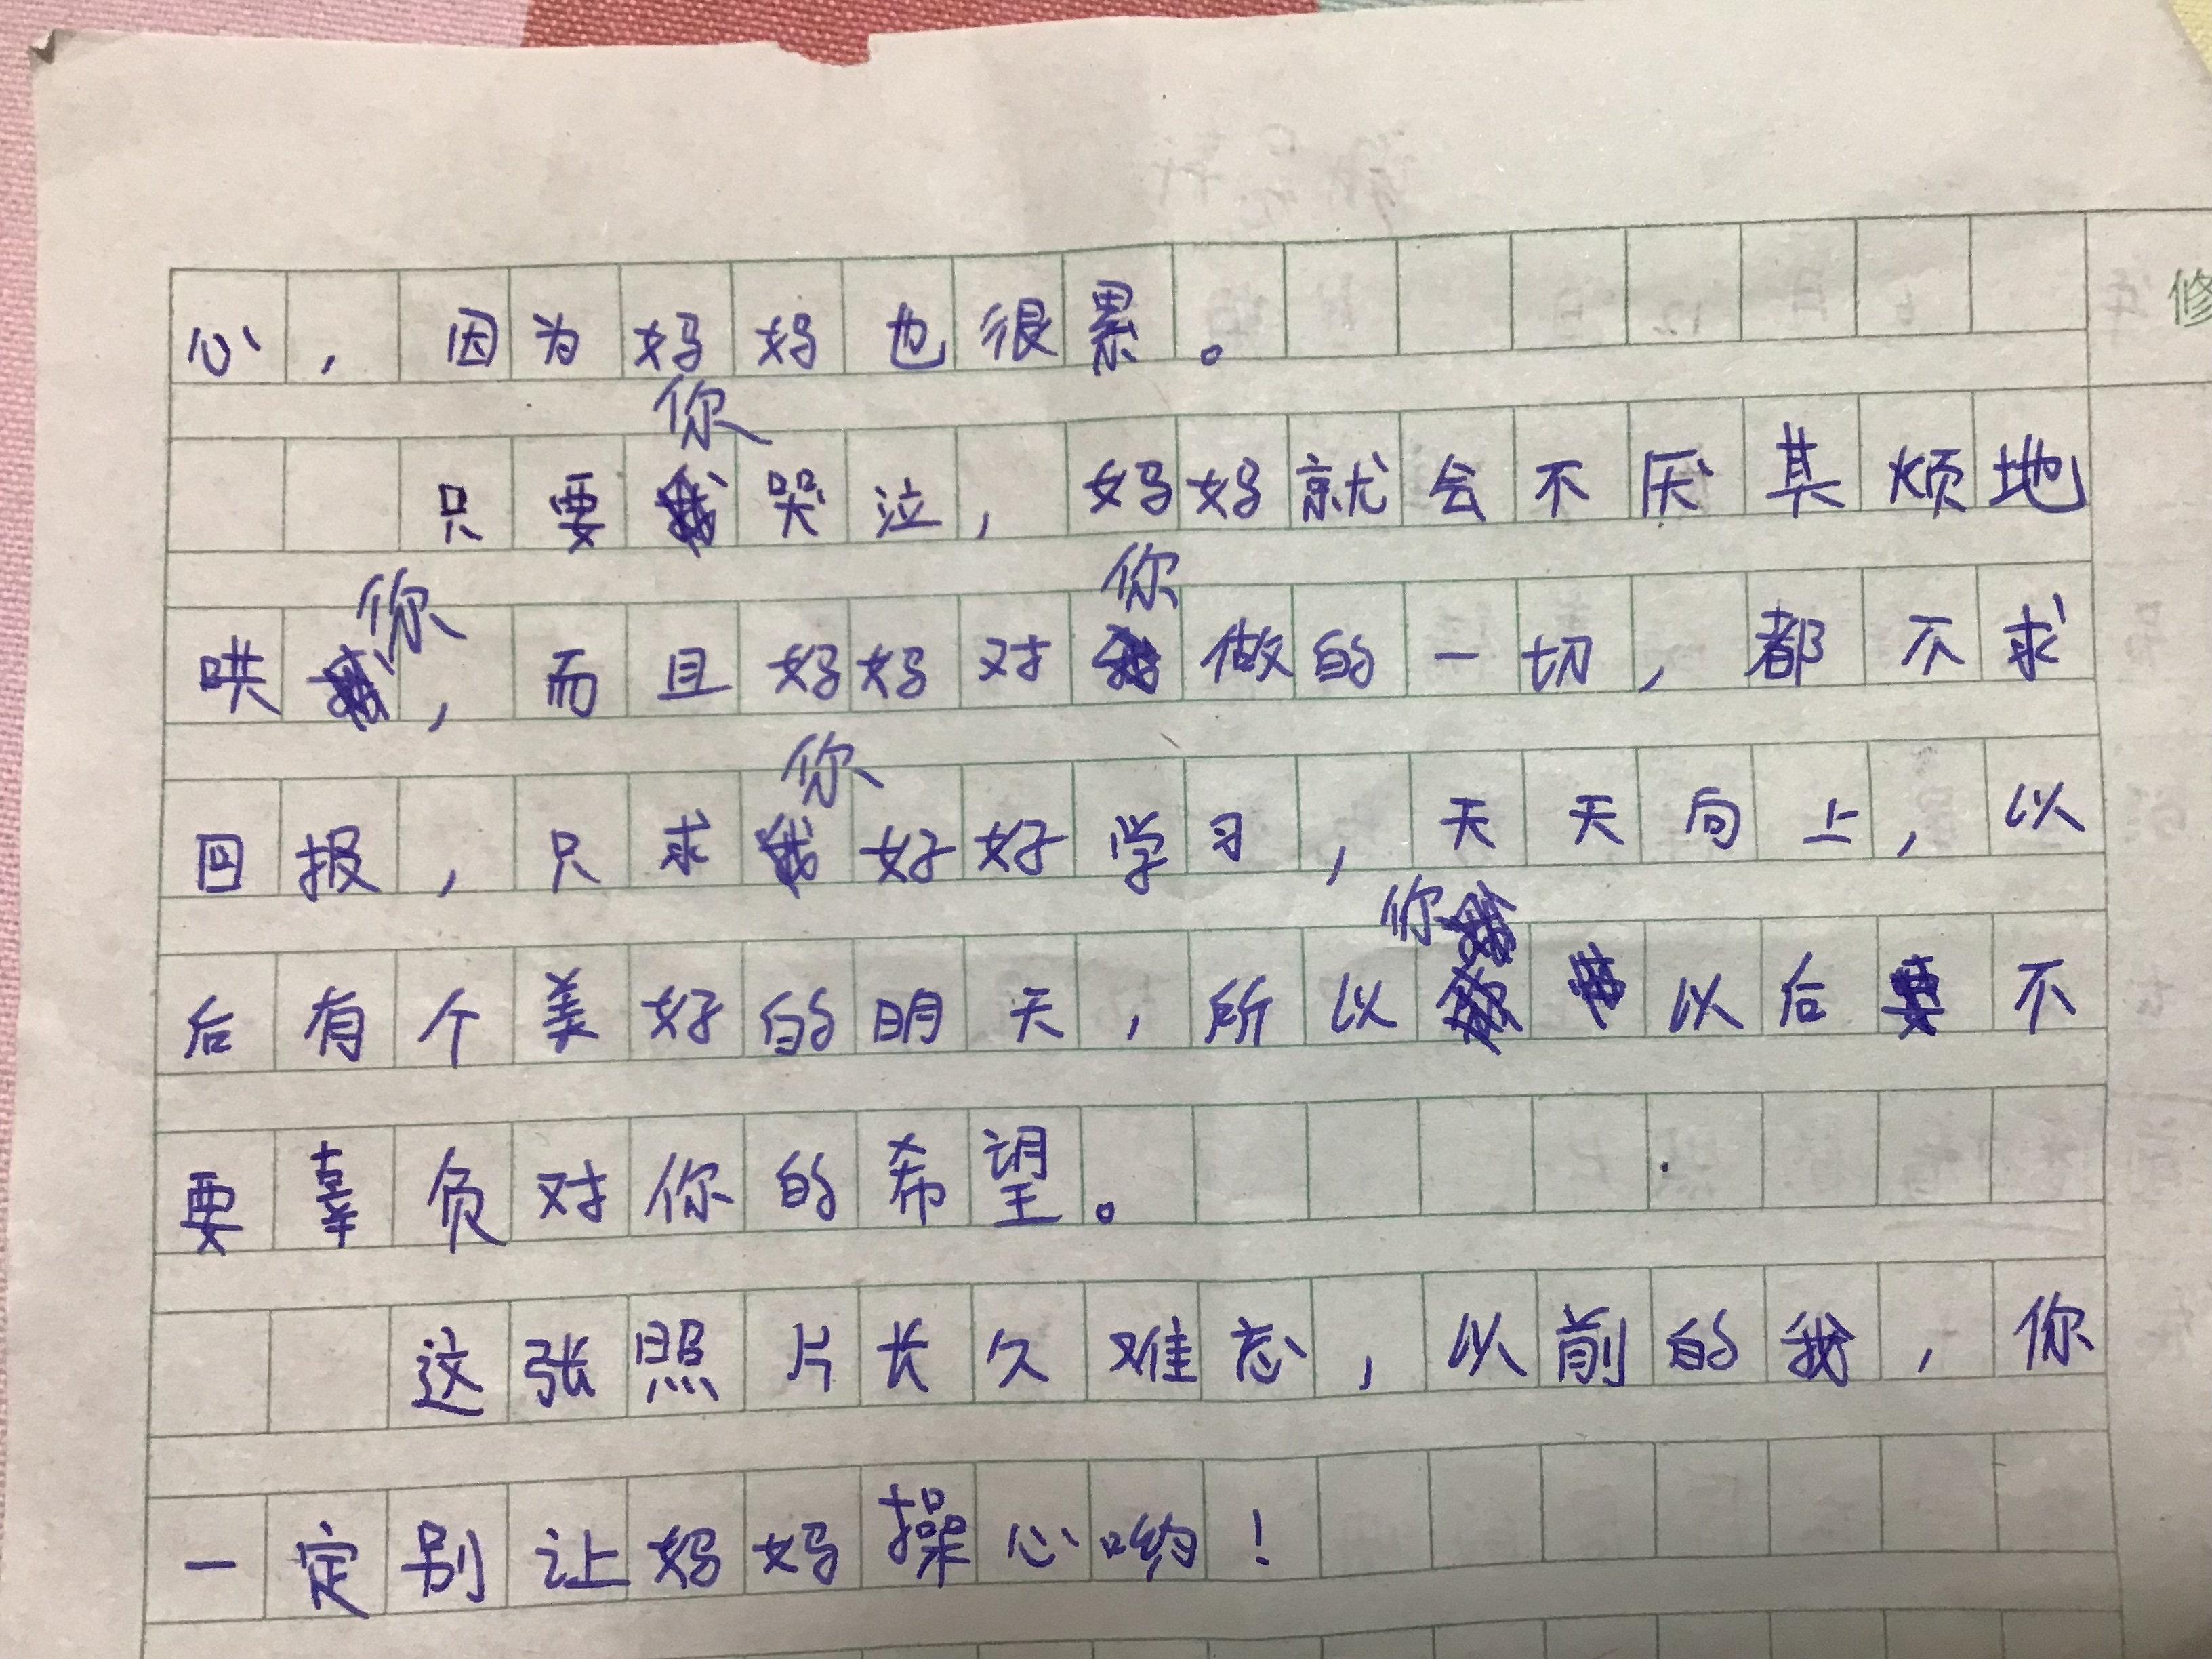 心，因为妈妈也很累。
只要你哭泣，妈妈就会不厌其烦地
哄你，而且妈妈对你做的一切，都不求
回报，只求你好好学习，天天向上，以
后有个美好的明天，所以你以后不
要辜负对你的希望。
这张照片长久难忘，以前的我，你
一定别让妈妈操心哟！
修